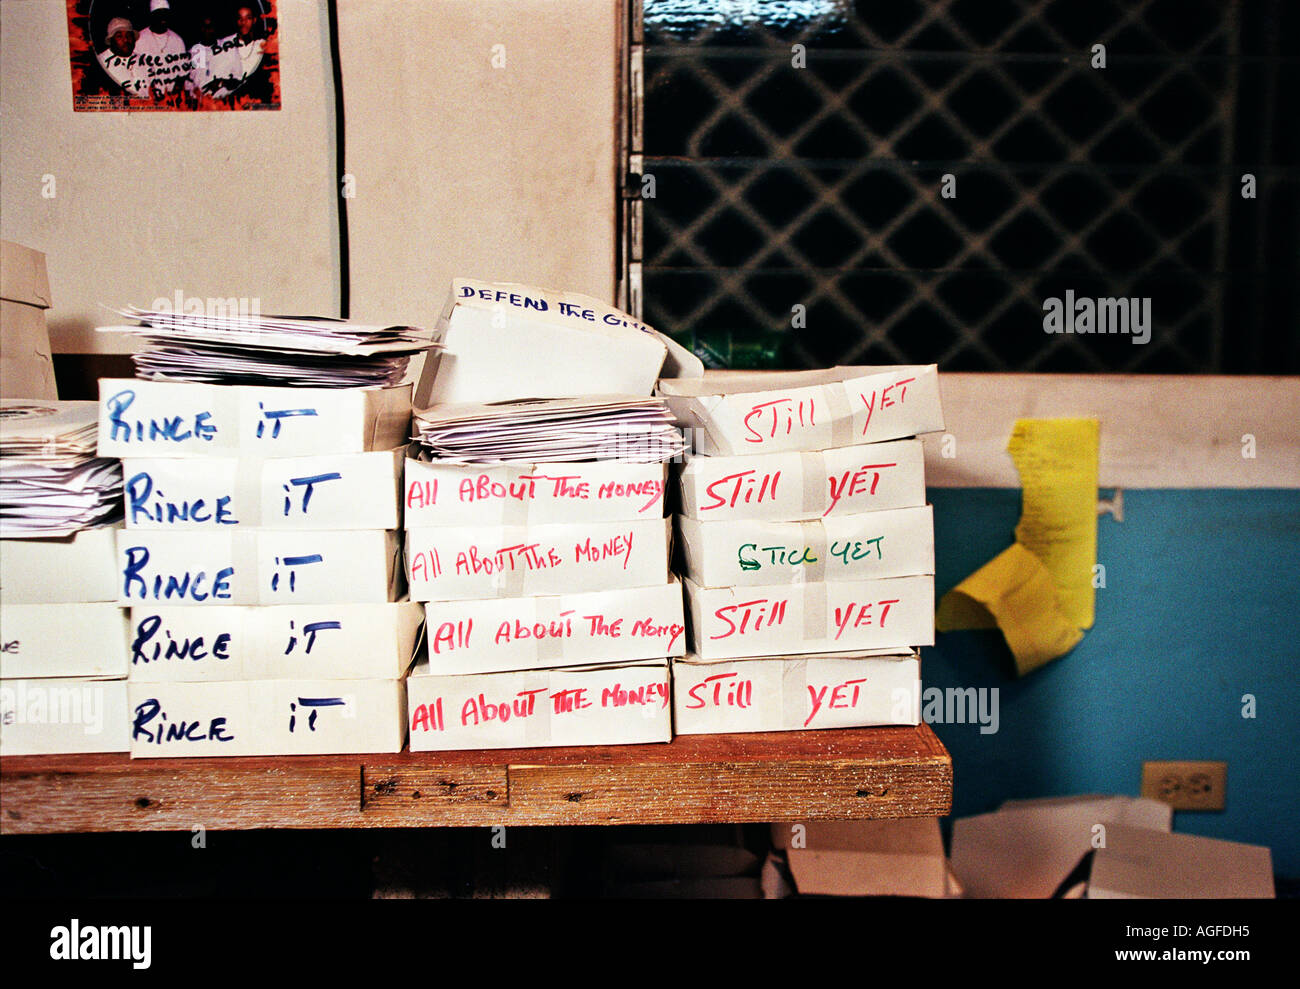 TO: FREEDOM
SOUND
DEFEND THE
RINCE IT
RINCE IT
RINCE IT
RINCE IT
RINCE IT
All ABOUT THE MONEY
All ABOUT THE MONEY
All ABOUT The Money
All ABOUT THE MONEY
STill YET
STill YET
STILL YET
STill YET
STill YET
alamy
alamy
alamy
Image ID: AGFDH5
www.alamy.com